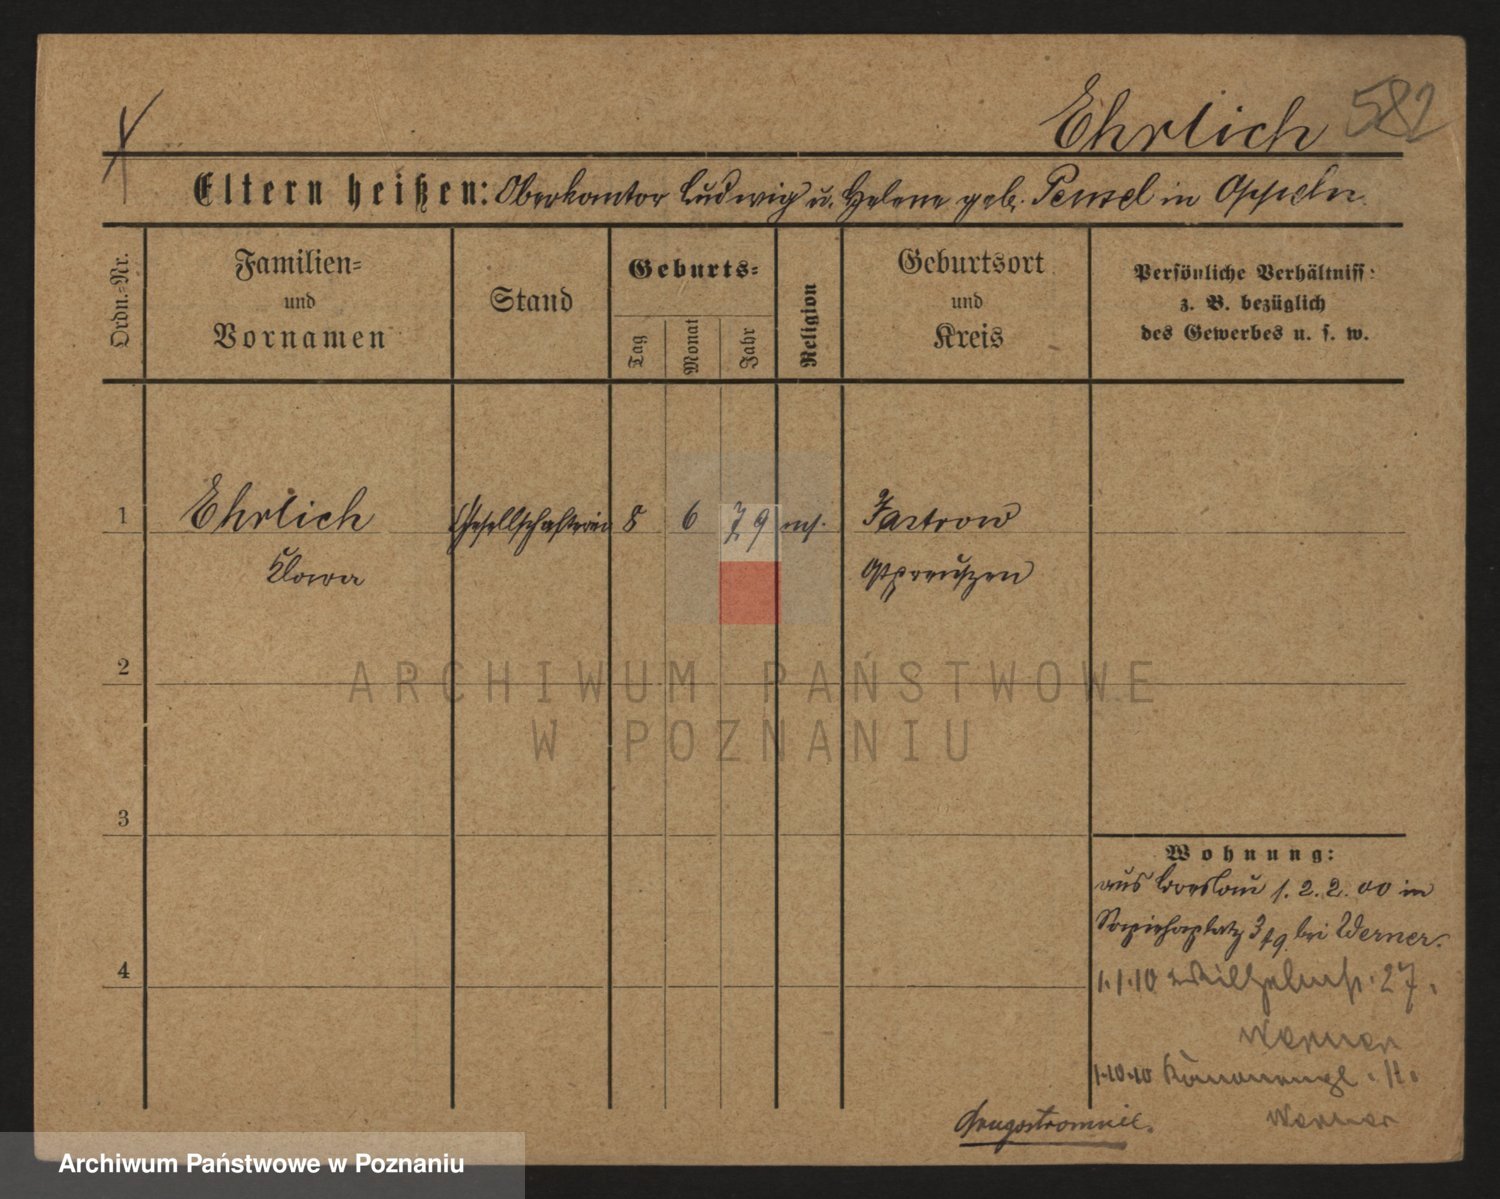 Ehrlich 582
Eltern heißen: Oberkantor Ludwig u. Helene geb. in Oppeln
Ordn.-Nr.
Familien-
und
Vornamen
Stand
Geburts-
Tag
Monat
Jahr
Religion
Geburtsort
und
Kreis
Persönliche Verhältniss:
z. B. bezüglich
des Gewerbes u. s. w.
1 Ehrlich Gesellschafterin 8 6 79 mos. Jastrow
Klara Ostpreußen
2
ARCHIWUM PAŃSTWOWE
W POZNANIU
3
Wohnung:
aus Breslau 1.2.2.00 in
Sapiehaplatz bei Werner.
4
1.1.10 Wilhelmstr. 27.
Werner
1.10.10 11.
Werner
Drugostronnie.
Archiwum Państwowe w Poznaniu